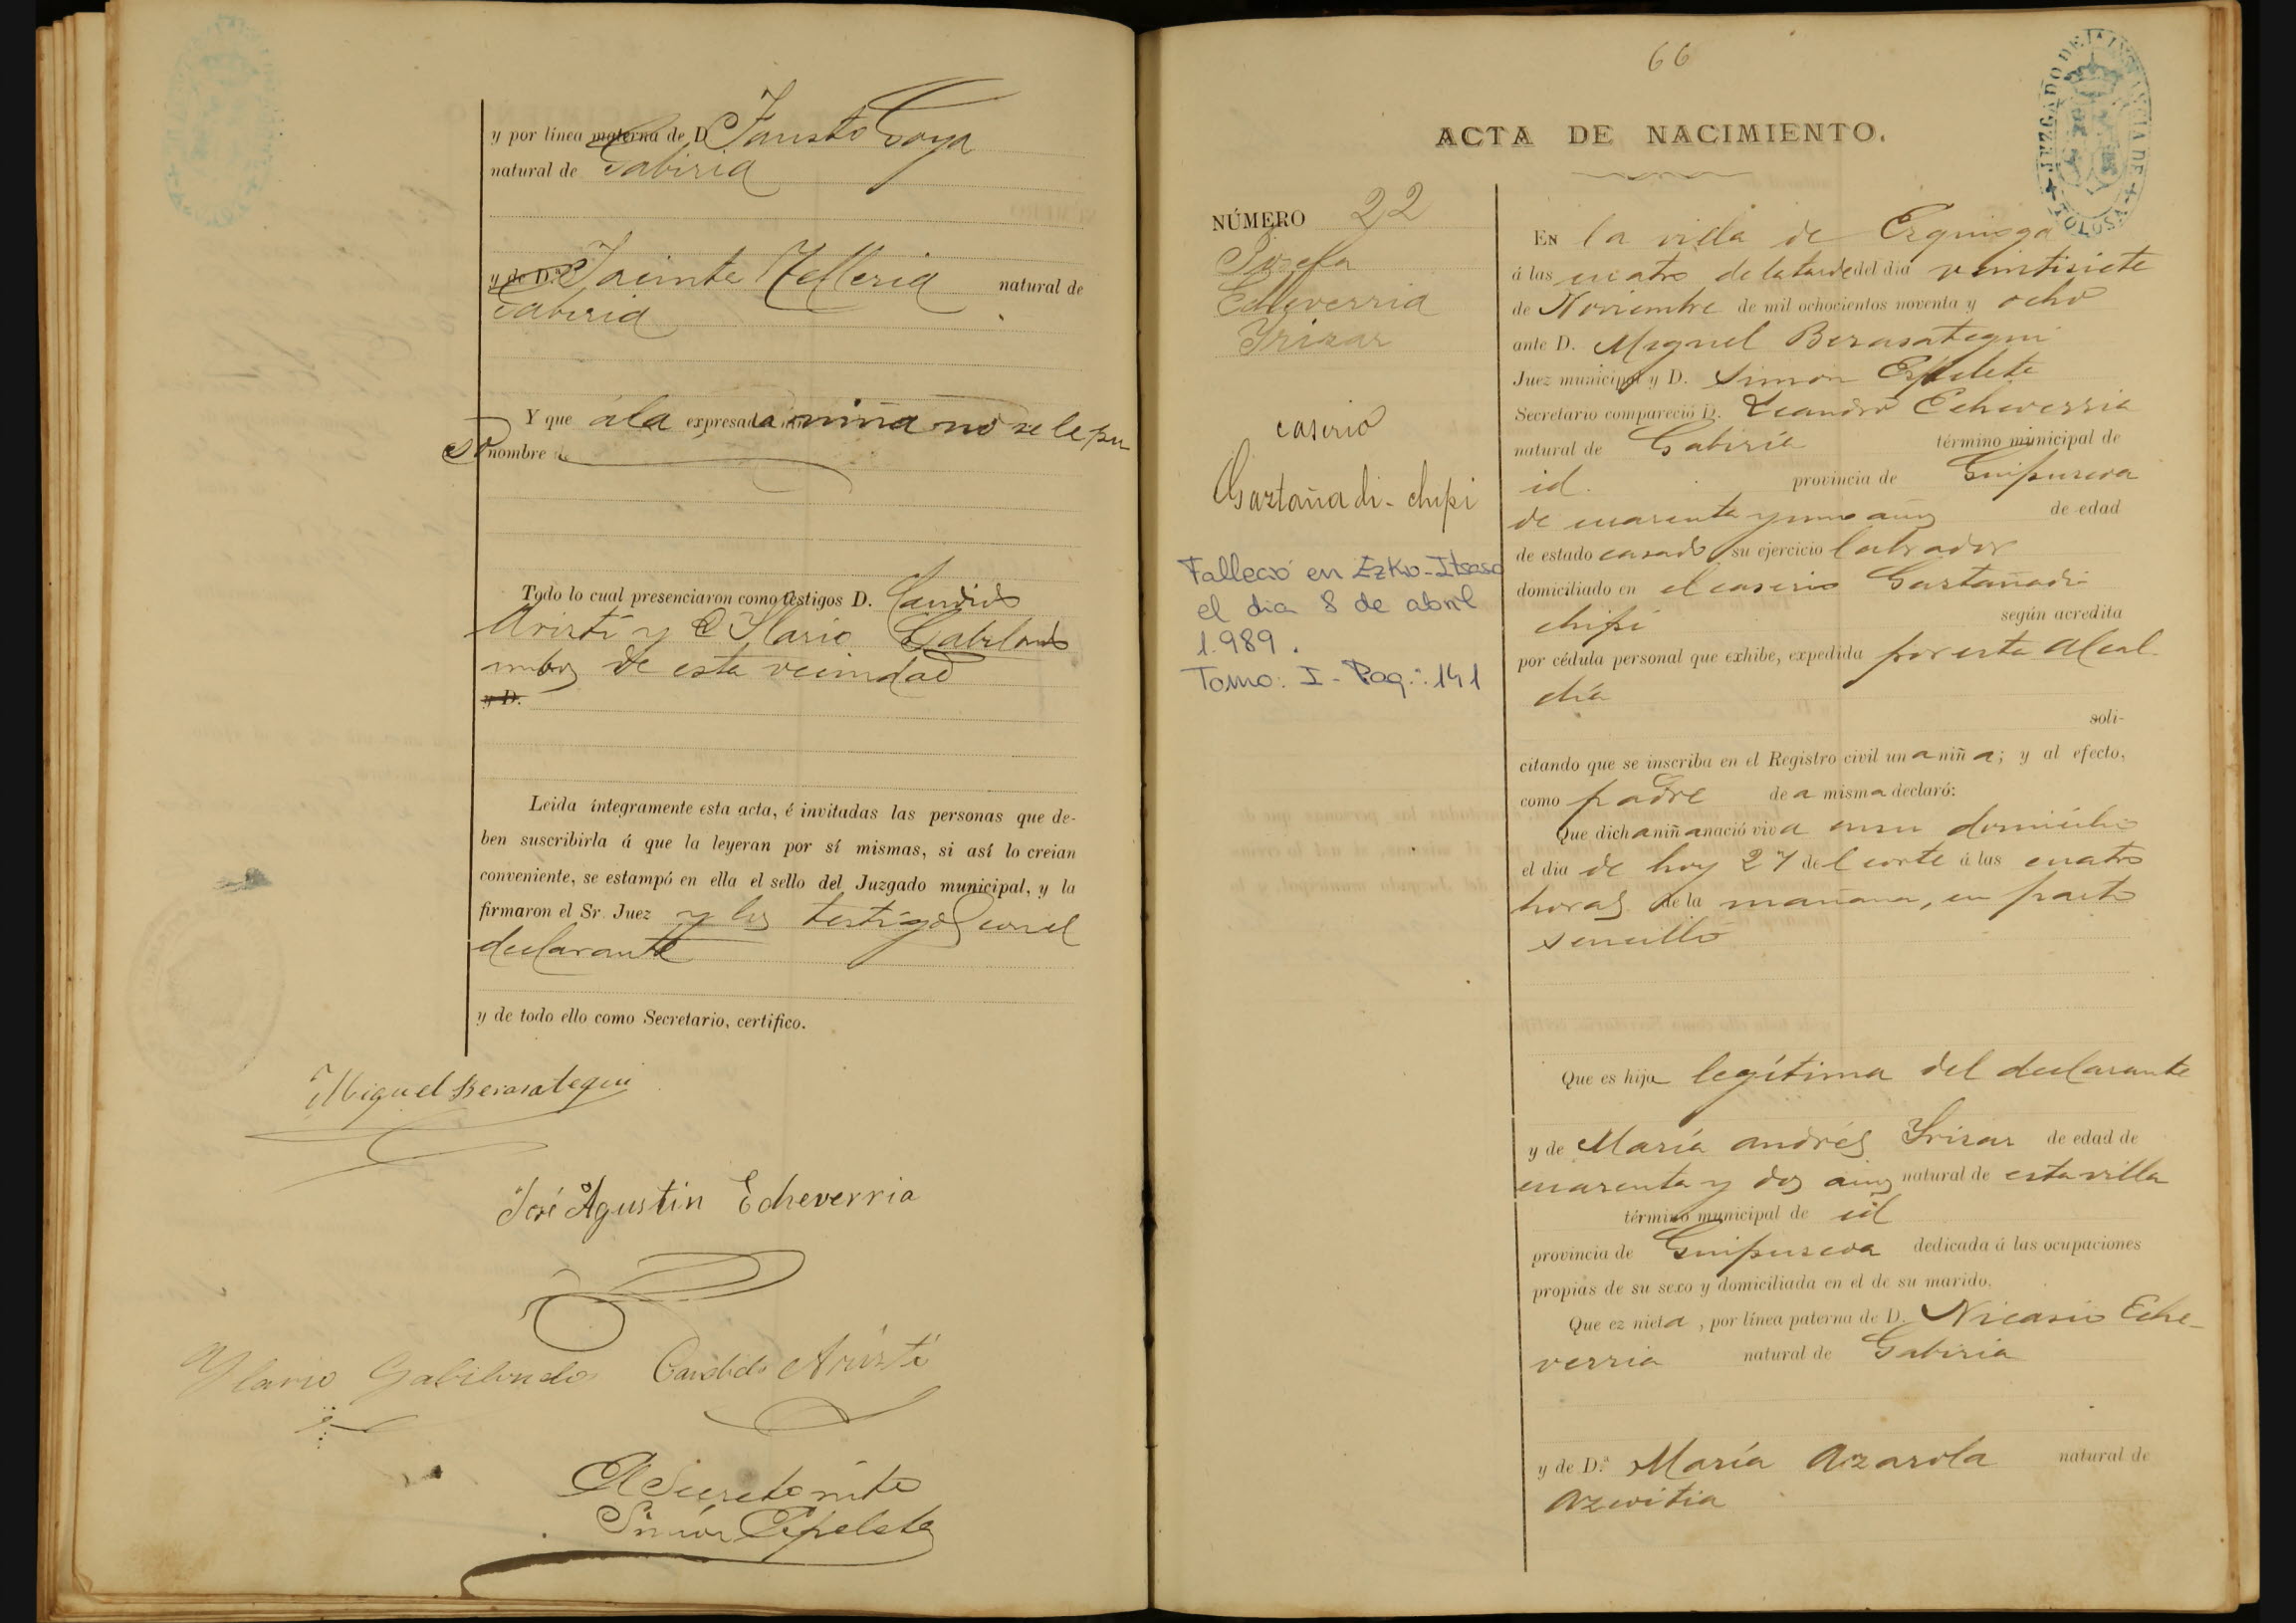 y por línea materna de D. Fausto Goya
natural de Gabiria
y de D.ª Jacinta Telleria natural de
Gabiria
Y que á la expresada niña no se le pu
so nombre
Todo lo cual presenciaron como testigos D. Candido
Aristi y D Ylario Gabilondo
ambos de esta vecindad
y D.
Leida íntegramente esta acta, é invitadas las personas que de-
ben suscribirla á que la leyeran por sí mismas, si así lo creian
conveniente, se estampó en ella el sello del Juzgado municipal, y la
firmaron el Sr. Juez y los testigos con el
declarante
y de todo ello como Secretario, certifico.
Miguel Berasategui
José Agustin Echeverria
Ylario Gabilondo Candido Aristi
El Secretario
Simón Espelete
66
JUZGADO DE 1ª INSTANCIA DE TOLOSA
ACTA DE NACIMIENTO.
NÚMERO 22
Josefa
Echeverria
Yrizar
caserio
Gaztañadi-chipi
Falleció en Ezkio-Itsaso
el dia 8 de abril
1.989.
Tomo: I - Pag.: 141
EN la villa de Ezquioga
á las cuatro de la tarde del día veintisiete
de Noviembre de mil ochocientos noventa y ocho
ante D. Miguel Berasategui
Juez municipal y D. Simón Espelete
Secretario compareció D. Leandro Echeverria
natural de Gabiria término municipal de
id. provincia de Guipuzcoa
de cuarenta y uno años de edad
de estado casado su ejercicio labrador
domiciliado en el caserio Gaztañadi
chipi según acredita
por cédula personal que exhibe, expedida por esta Alcal
día
soli-
citando que se inscriba en el Registro civil una niña; y al efecto,
como padre de a misma declaró:
Que dicha niña nació viva en su domicilio
el día de hoy 27 del corte á las cuatro
horas de la mañana, en parto
sencillo
Que es hija legítima del declarante
y de María Andrés Yrizar de edad de
cuarenta y dos años natural de esta villa
término municipal de id
provincia de Guipuzcoa dedicada á las ocupaciones
propias de su sexo y domiciliada en el de su marido.
Que ez nieta, por línea paterna de D. Nicasio Eche-
verria natural de Gabiria
y de D.ª María Azarola natural de
Azcoitia